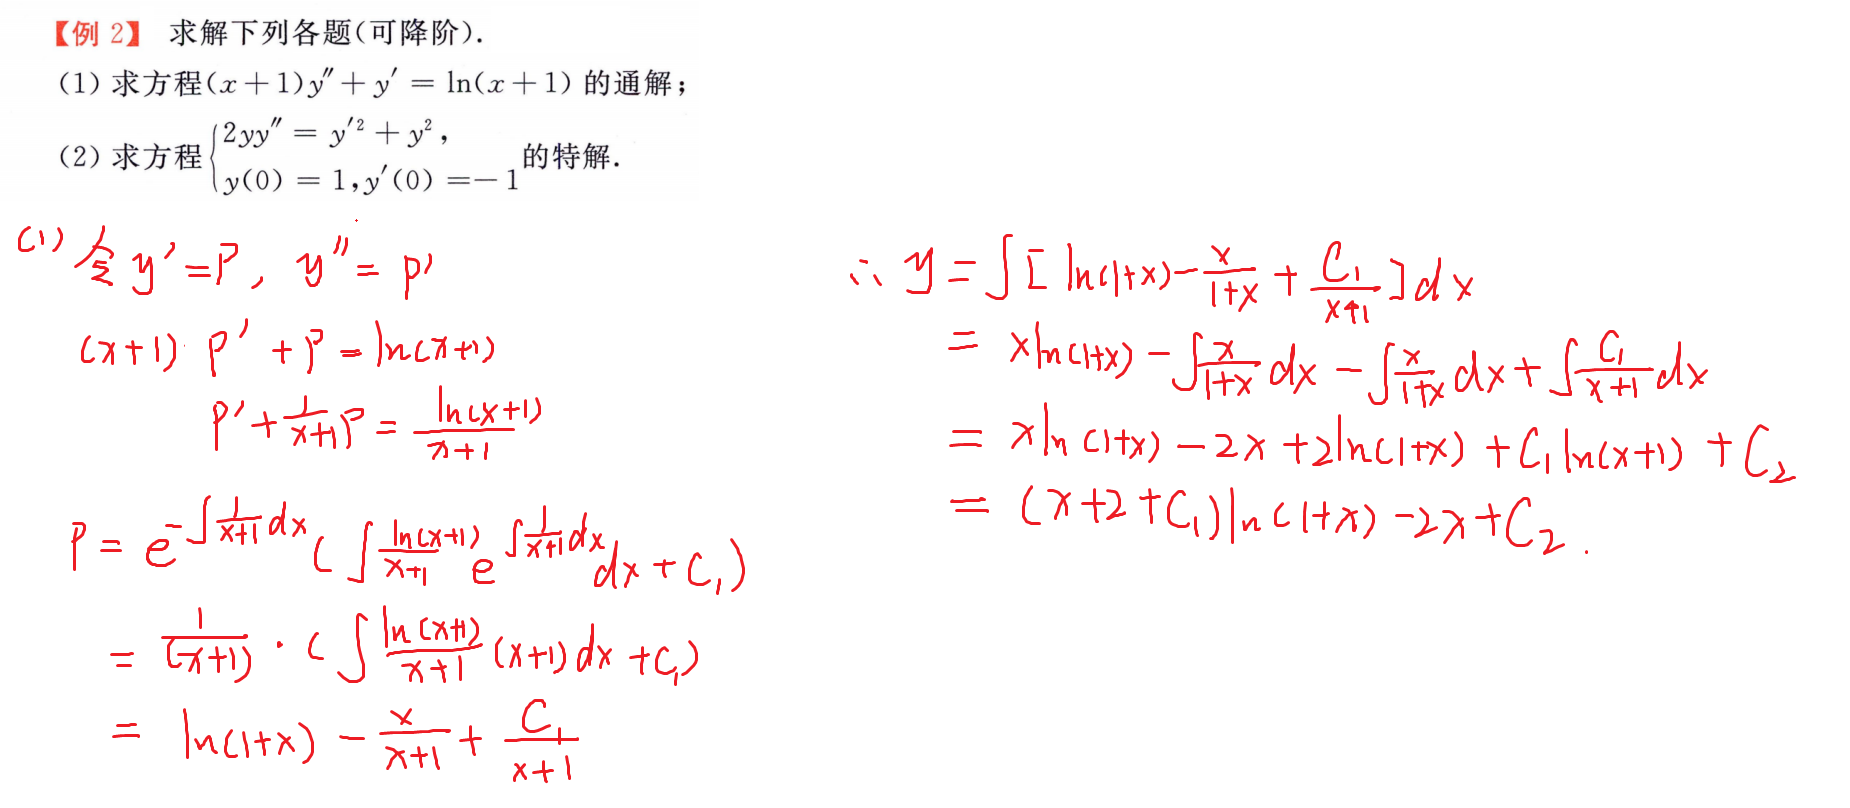 【例 2】 求解下列各题(可降阶).
(1) 求方程(x+1)y″+y′ = ln(x+1) 的通解;
(2) 求方程{2yy″ = y′²+y², y(0) = 1,y′(0) =−1 的特解.
(1) 令y′=P, y″=p′
(x+1)·P′+P=ln(x+1)
P′+\frac{1}{x+1}P=\frac{ln(x+1)}{x+1}
P=e^{-∫\frac{1}{x+1}dx}(∫\frac{ln(x+1)}{x+1}e^{∫\frac{1}{x+1}dx}dx+C₁)
=\frac{1}{(x+1)}·(∫\frac{ln(x+1)}{x+1}(x+1)dx+C₁)
=ln(1+x)-\frac{x}{x+1}+\frac{C₁}{x+1}
∴ y=∫[ln(1+x)-\frac{x}{1+x}+\frac{C₁}{x+1}]dx
=xln(1+x)-∫\frac{x}{1+x}dx-∫\frac{x}{1+x}dx+∫\frac{C₁}{x+1}dx
=xln(1+x)-2x+2ln(1+x)+C₁ln(x+1)+C₂
=(x+2+C₁)ln(1+x)-2x+C₂.